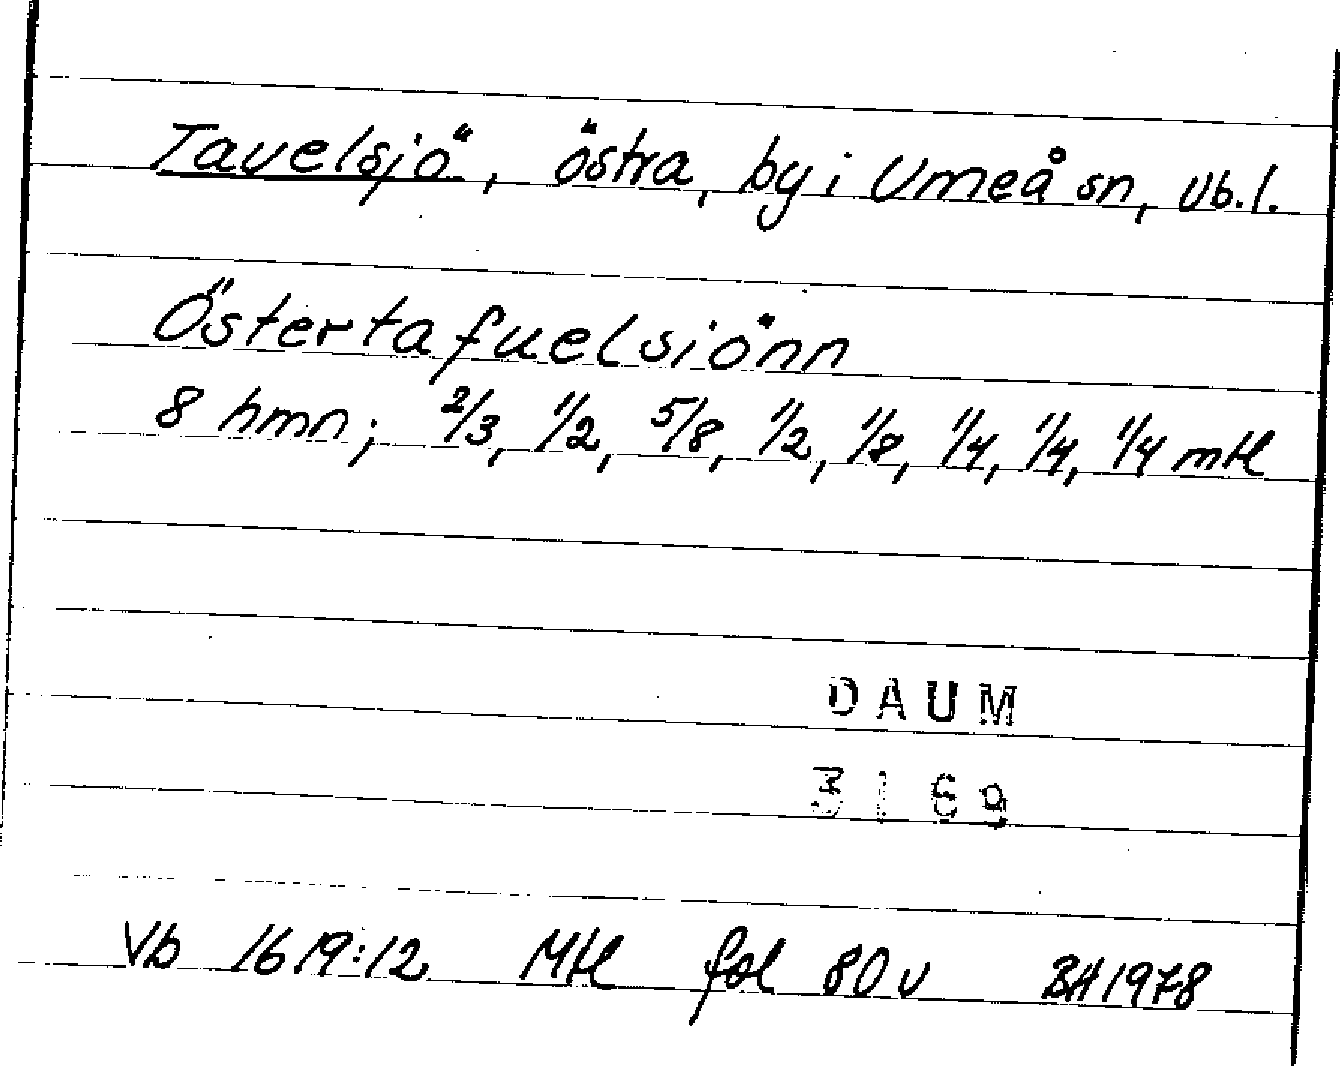 Tavelsjö, östra, by i Umeå sn, Vb.l.
Östertafuelsiönn
8 hmn; 2/3, 1/2, 5/8, 1/2, 1/8, 1/4, 1/4, 1/4 mtl
DAUM
3169
Vb 1619:12 Mtl fol 80v BH 1978